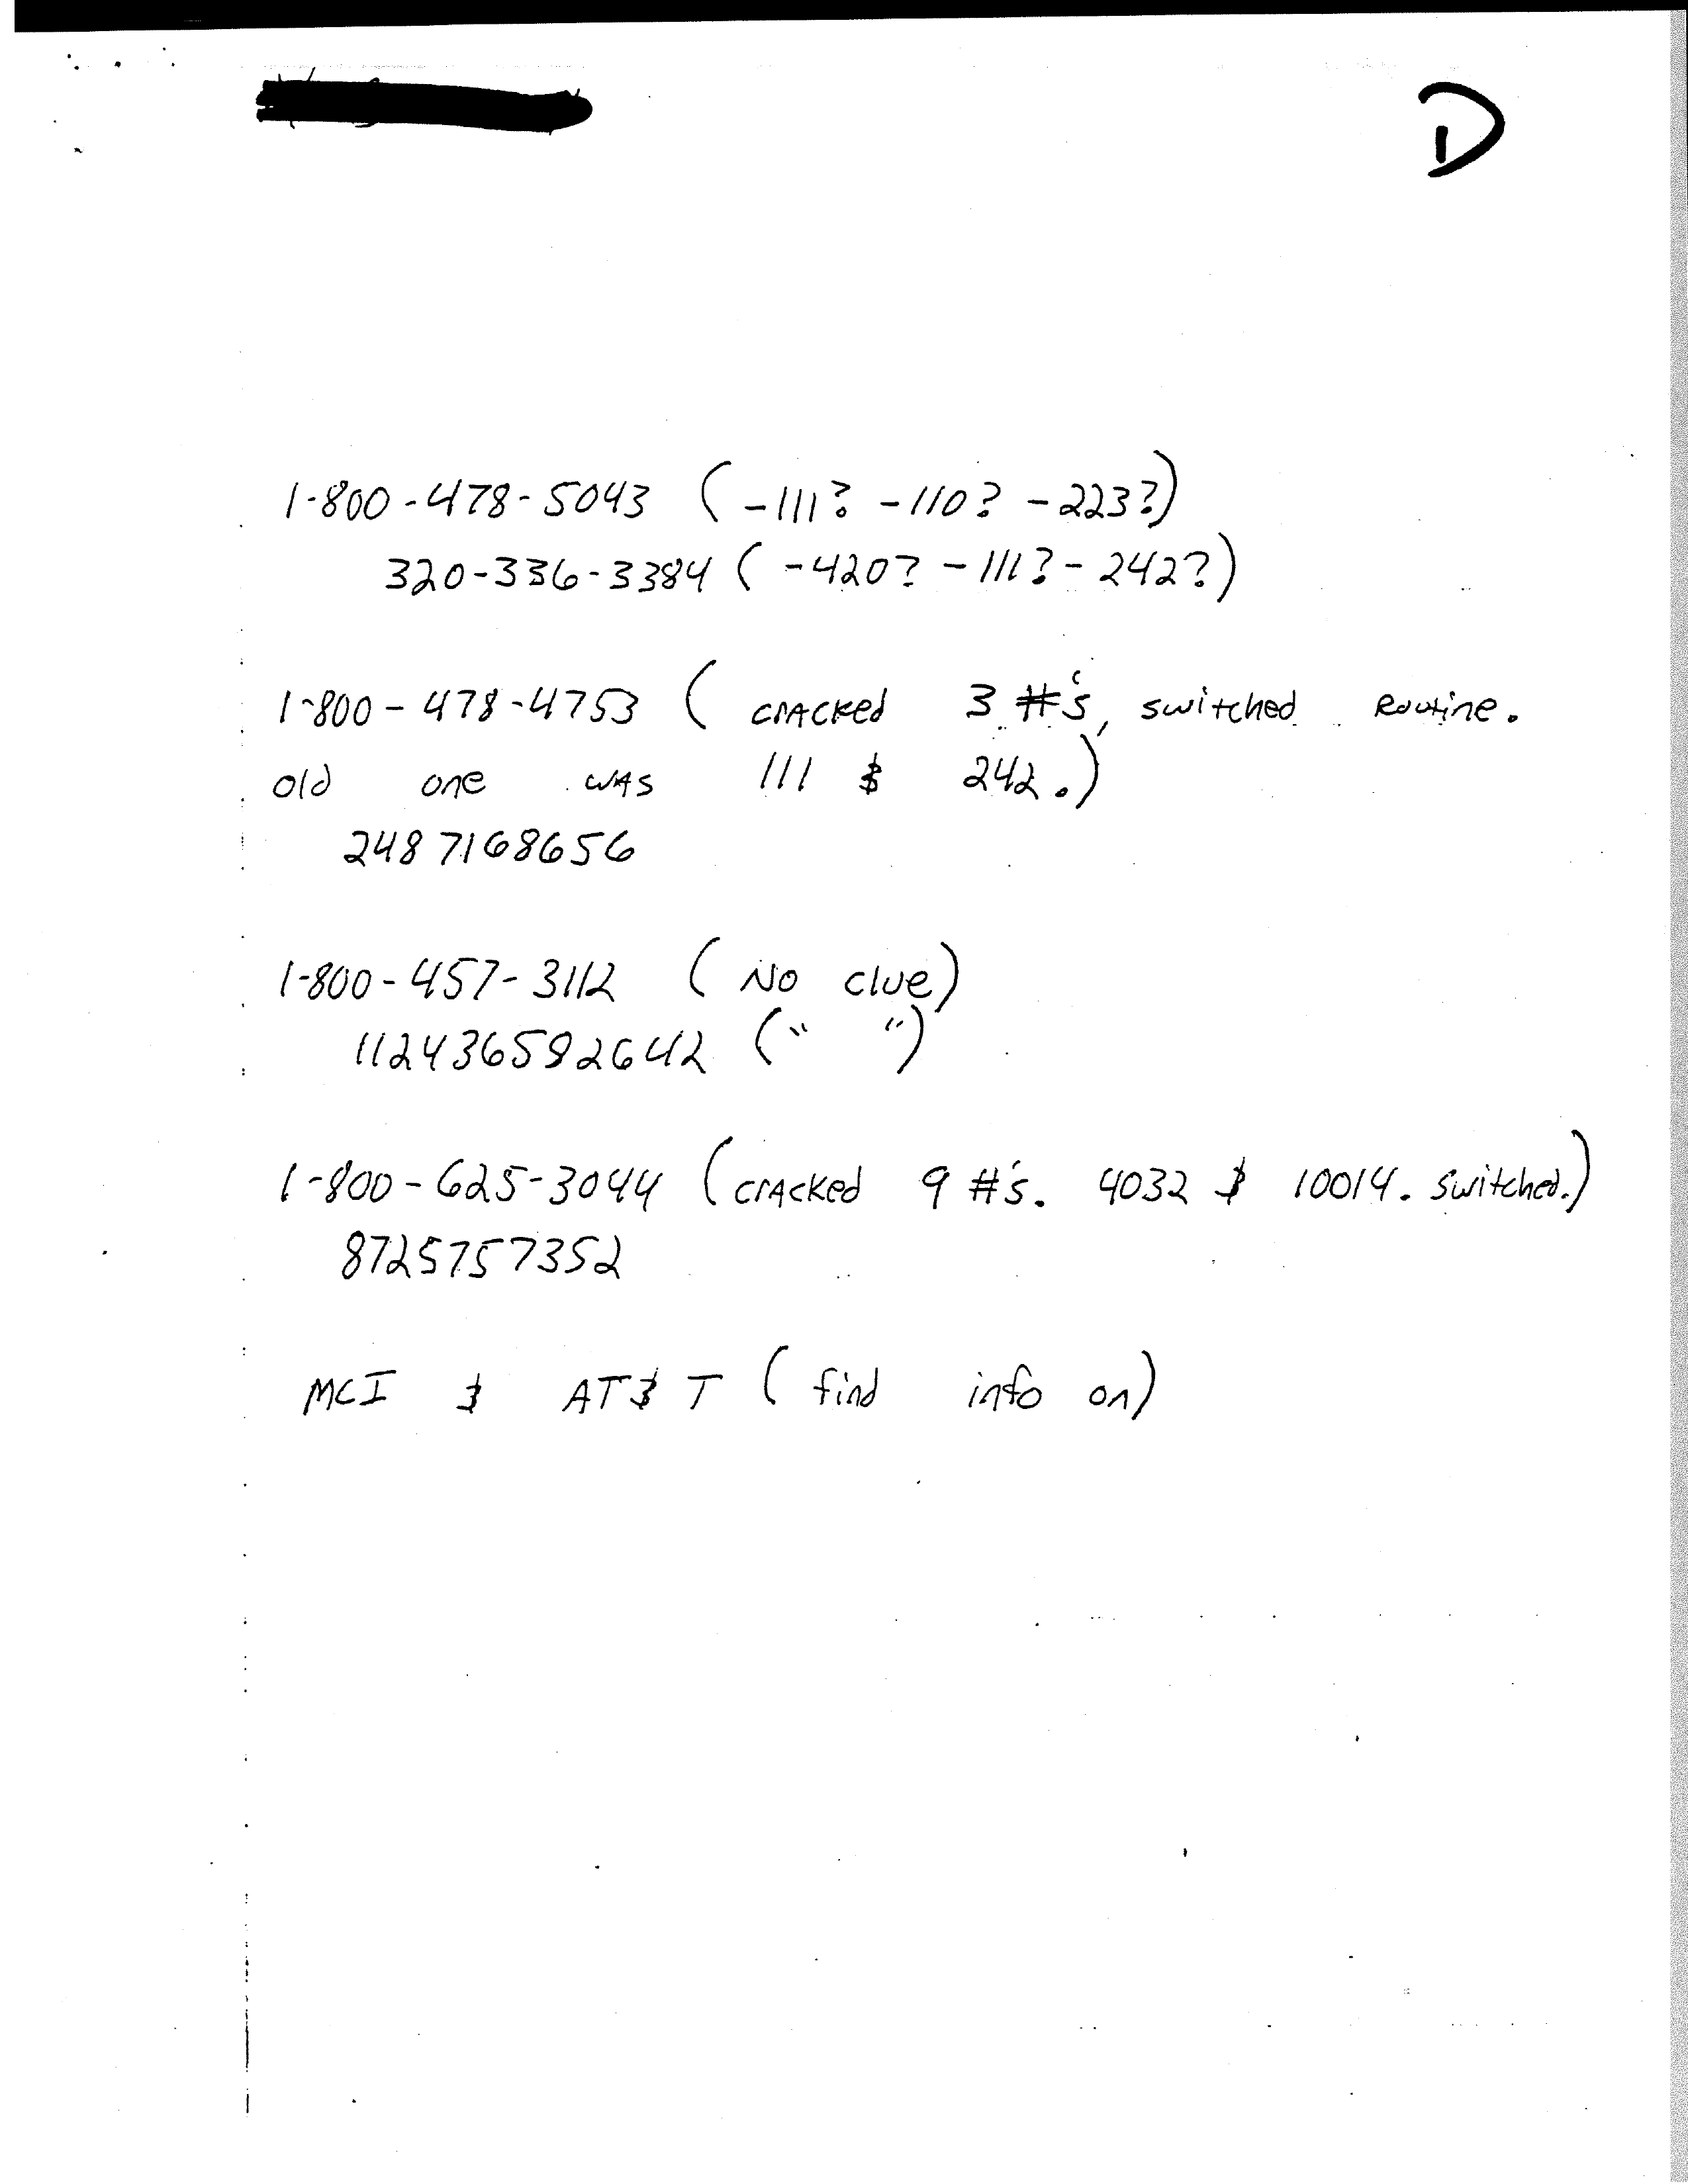 D
1-800-478-5043 (-111? -110? -223?)
320-336-3384 (-420? -111? -242?)
1-800-478-4753 (cracked 3 #'s, switched Routine.
old one was 111 & 242.)
2487168656
1-800-457-3112 (No clue)
112436592642 (" ")
1-800-625-3044 (cracked 9 #'s. 4032 & 10014. Switched.)
8725757352
MCI & AT&T (find info on)